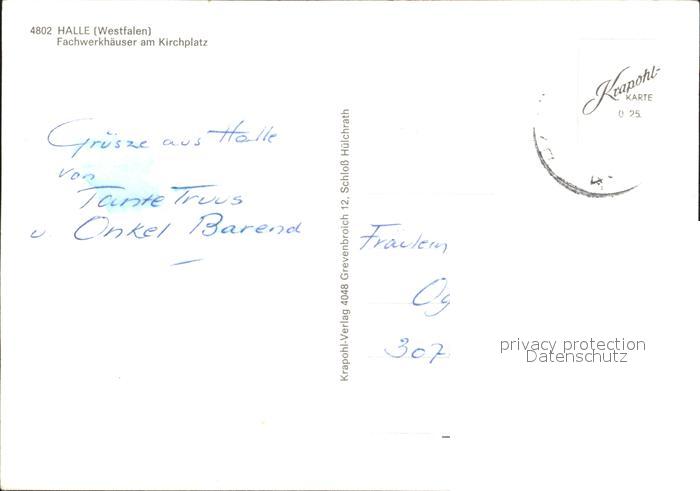 4802 HALLE (Westfalen)
Fachwerkhäuser am Kirchplatz
Krapohl-
KARTE
0 25
Grüsze aus Halle
von
Tante Truus
u. Onkel Barend
Krapohl-Verlag 4048 Grevenbroich 12, Schloß Hülchrath
Fräulein
Og
307
privacy protection
Datenschutz